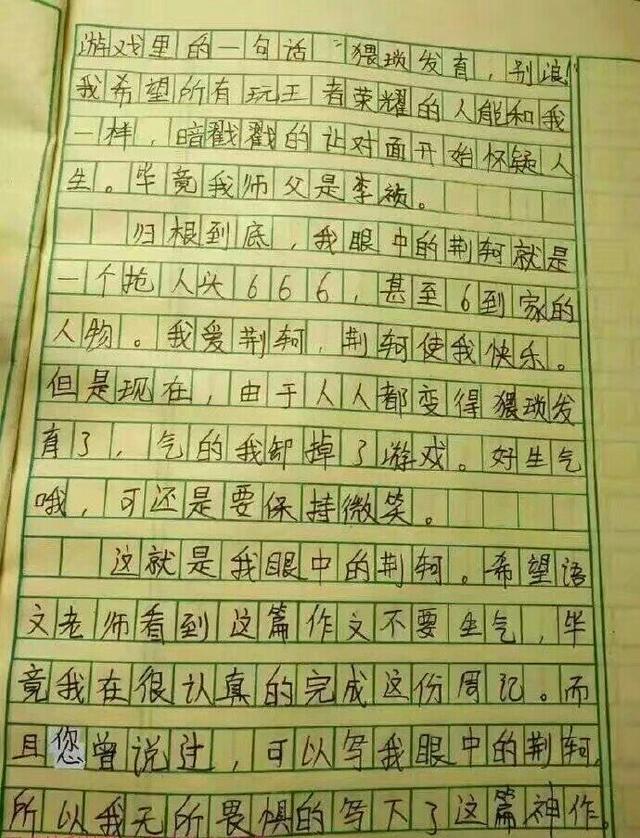 游戏里的一句话“猥琐发育,别浪”
我希望所有玩王者荣耀的人能和我
一样,暗戳戳的让对面开始怀疑人
生。毕竟我师父是李祯。
归根到底,我眼中的荆轲就是
一个抢人头666,甚至6到家的
人物。我爱荆轲,荆轲使我快乐。
但是现在,由于人人都变得猥琐发
育了,气的我卸掉了游戏。好生气
哦,可还是要保持微笑。
这就是我眼中的荆轲。希望语
文老师看到这篇作文不要生气,毕
竟我在很认真的完成这份周记。而
且您曾说过,可以写我眼中的荆轲,
所以我无所畏惧的写下了这篇神作。